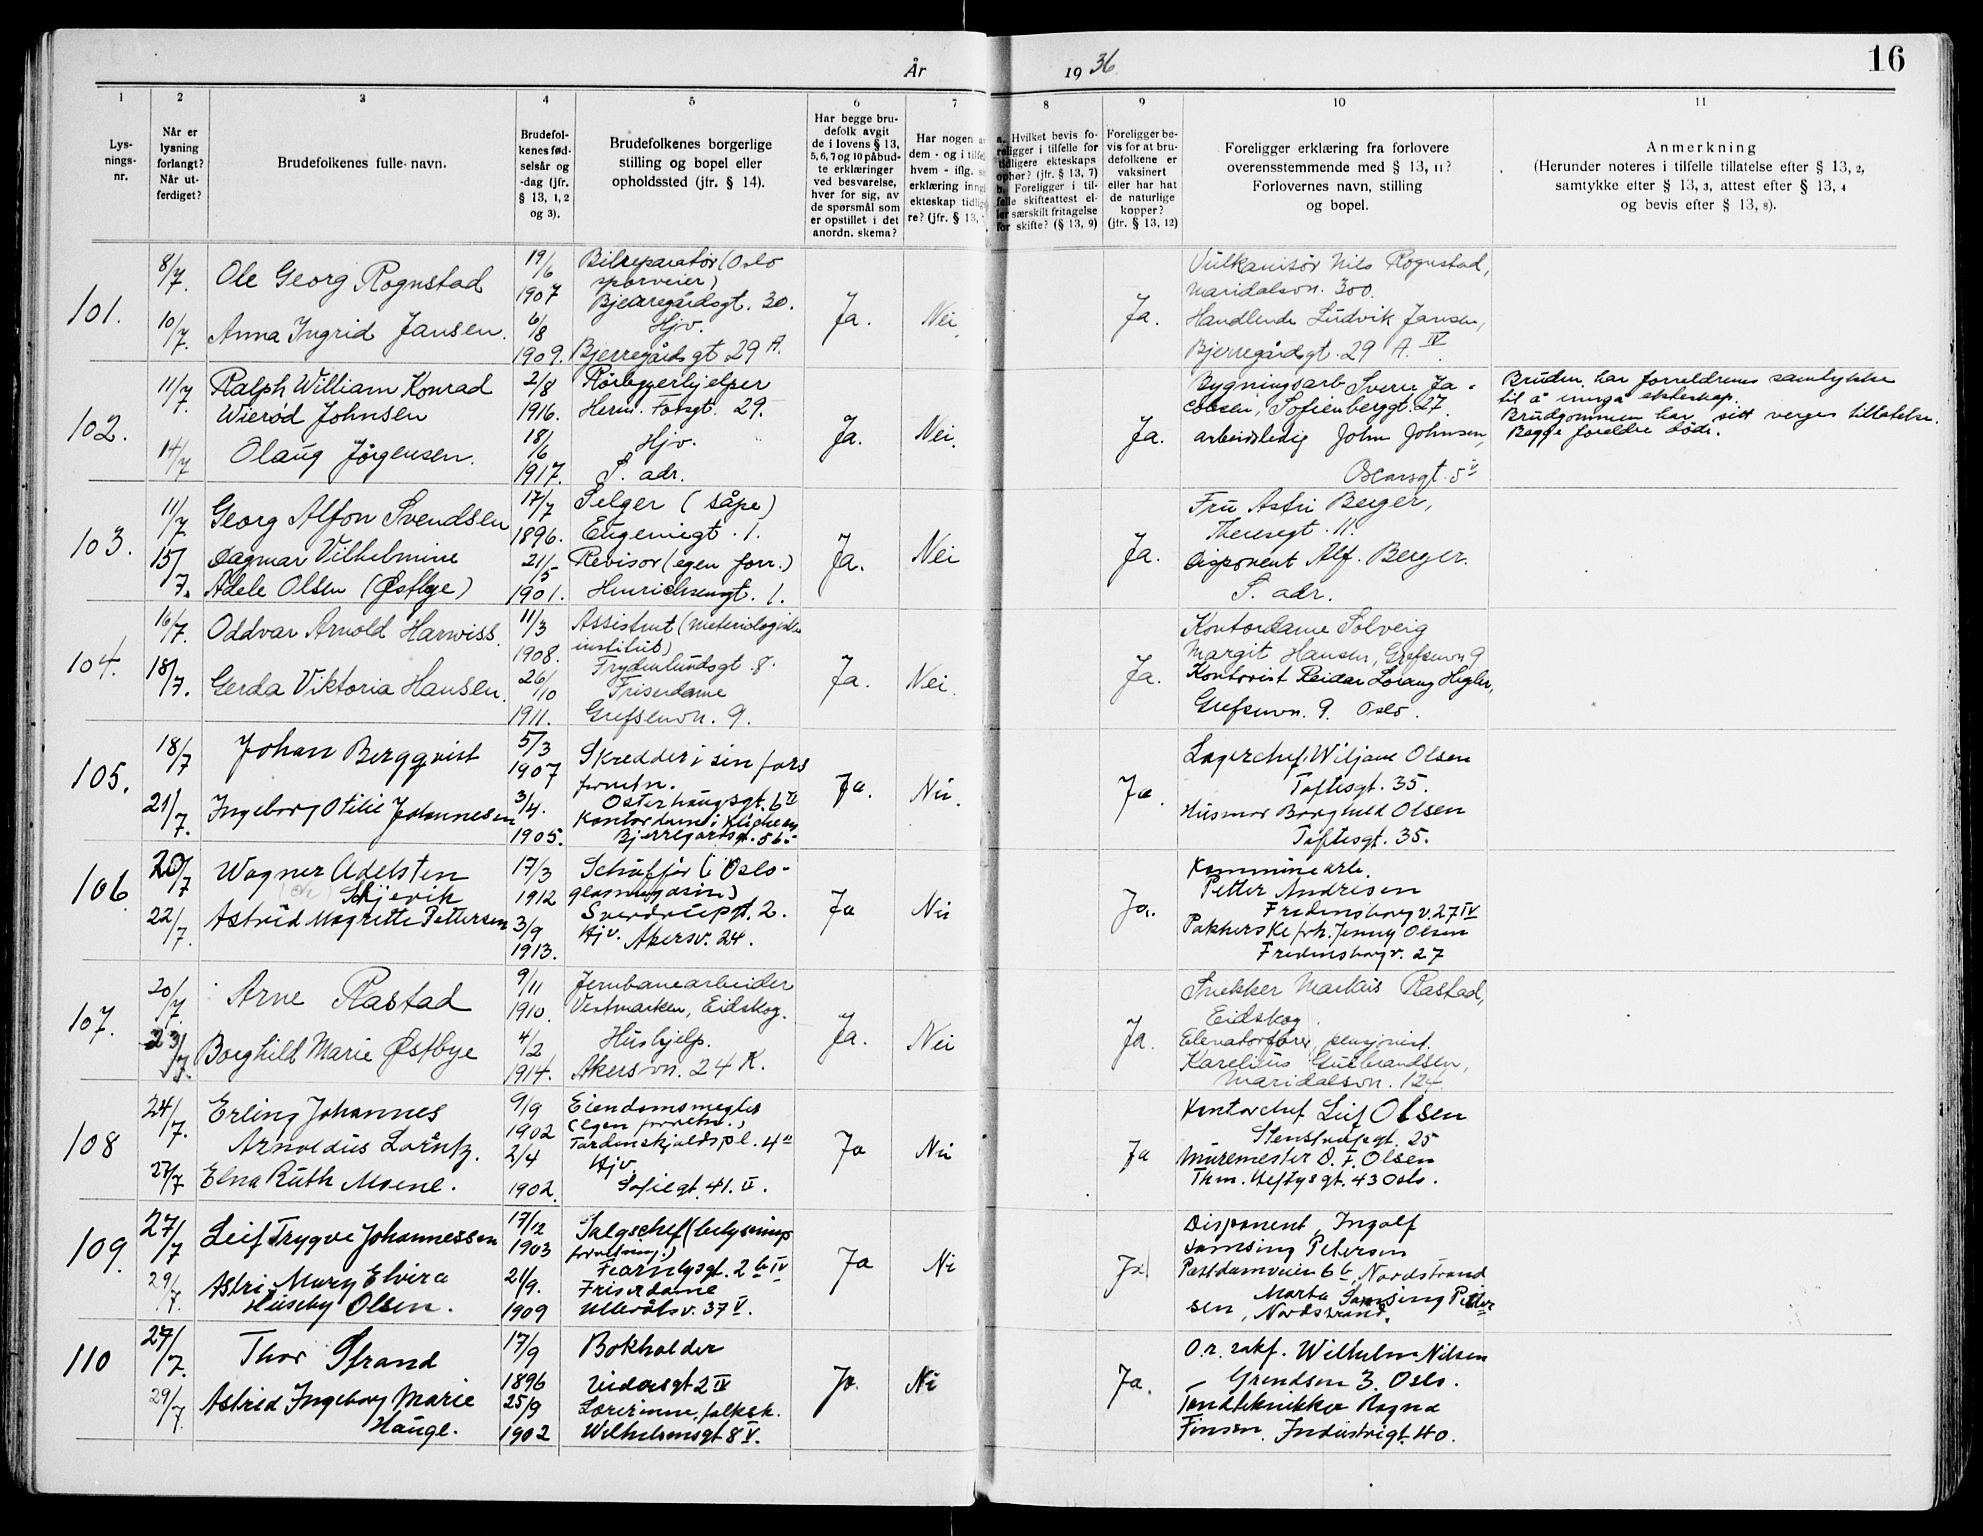 År 1936
16
1
Lys-
nings-
nr.
2
Når er
lysning
forlangt?
Når ut-
ferdiget?
3
Brudefolkenes fulle navn.
4
Brudefol-
kenes fød-
selsår og
-dag (jfr.
§ 13, 1, 2
og 3).
5
Brudefolkenes borgerlige
stilling og bopel eller
opholdssted (jfr. § 14).
6
Har begge bru-
defolk avgit
de i lovens § 13,
5, 6, 7 og 10 påbud-
te erklæringer
ved besvarelse,
hver for sig, av
de spørsmål som
er opstillet i det
anordn. skema?
7
Har nogen av
dem - og i tilfel
hvem - iflg.
erklæring inng
ekteskap tidlig
re? (jfr. § 13,
8
a. Hvilket bevis fo-
religger i tilfelle for
tidligere ekteskaps
ophør? (jfr. § 13, 7)
b. Foreligger i til-
felle skifteattest el-
ler særskilt fritagelse
for skifte? (§ 13, 9)
9
Foreligger be-
vis for at bru-
defolkene er
vaksinert
eller har hat
de naturlige
kopper?
(jfr. § 13, 12)
10
Foreligger erklæring fra forlovere
overensstemmende med § 13, 11?
Forlovernes navn, stilling
og bopel.
11
Anmerkning
(Herunder noteres i tilfelle tillatelse efter § 13, 2,
samtykke efter § 13, 3, attest efter § 13, 4
og bevis efter § 13, 8).
101.
8/7.
10/7.
Ole Georg Rognstad
Anna Ingrid Jansen.
19/6
1907
6/8
1909.
Bilreparatør (Oslo
sporveier)
Bjerregårdsgt. 30.
Hjv.
Bjerregårdsgt 29 A.
Ja.
Nei
Ja.
Vulkanisør Nils Rognstad,
Maridalsvn. 300.
Handlende Ludvik Jansen,
Bjerregårdsgt. 29 A. IV
102.
11/7.
14/7
Ralph William Konrad
Wierød Johnsen
Olaug Jørgensen.
2/8
1916.
18/6
1917.
Rørleggerhjelper
Herm. Fossgt. 29.
Hjv.
S. adr.
Ja.
Nei.
Ja.
Bygningsarb. Sverre Ja-
cobsen, Sofienberggt. 27.
arbeidsledig John Johnsen,
Oscarsgt. 5 V
Bruden har foreldrenes samtykke
til å inngå ekteskap.
Brudgommen har sitt verges tillatelse.
Begge foreldre døde.
103.
11/7
15/7.
Georg Alfon Svendsen
Dagmar Vilhelmine
Adele Olsen (Østbye)
17/7
1896.
21/5
1901.
Selger (såpe)
Eugeniegt. 1.
Revisor (egen forr.)
Henrichsensgt. 1.
Ja.
Nei
Ja.
Fru Astri Berger,
Theresegt. 11.
Disponent Alf. Berger.
S. adr.
104.
16/7.
18/7.
Oddvar Arnold Harwiss.
Gerda Viktoria Hansen.
11/3
1908.
26/10
1911.
Assistent (Meteriologiske
institut)
Frydenlundsgt. 8.
Friserdame
Grefsenvn. 9.
Ja.
Nei.
Ja.
Kontordame Solveig
Margit Hansen, Grefsenvn 9
Kontorist Reidar Lorang Higler,
Grefsenvn. 9. Oslo.
105.
18/7
21/7.
Johan Bergqvist
Ingeborg Otilie Johannesen
5/3
1907
3/4.
1905.
Skredder i sin fars
forretn.
Osterhausgt. 6 II
Kontordame i
Bjerregårdsgt. 56.
Ja.
Nei.
Ja.
Lagerchef Wiljam Olsen
Toftesgt. 35.
Husmor Borghild Olsen
Toftesgt. 35.
106.
20/7
22/7.
Wagner Adelsten
Skjevik
Astrid Magrette Pettersen
17/3
1912
3/9
1913.
Schaffør (i Oslo-
glasmagasin)
Sverdrupsgt. 2.
Hjv.
Akersv. 24.
Ja
Nei
Ja.
Kommunearb.
Petter Andresen
Fredensborgv. 27 IV
Pakkerske frk. Jenny Olsen
Fredensborgv. 27
107.
20/7.
23/7.
Arne Rastad
Borghild Marie Østbye
9/11
1910.
4/2
1914.
Jernbanearbeider
Vestmarken, Eidskog.
Hushjelp.
Akersvn. 24 K.
Ja.
Nei
Ja.
Snekker Markus Rastad,
Eidskog.
Elevatorfører, pensjonist.
Karelius Gulbrandsen,
Maridalsvn. 124
108
24/7.
27/7
Erling Johannes
Arnoldus Lorntz.
Elna Ruth Moene.
9/9
1902
2/4
1902.
Eiendomsmegler
(egen forretn.)
Tordenskjoldspl. 4 II
Hjv.
Sofiegt. 41. II.
Ja
Nei
Ja
Kontorchef Leif Olsen
Stenstrupsgt. 25
Muremester O. F. Olsen
Thm. Heftysgt. 43 Oslo.
109.
27/7
29/7.
Leif Trygve Johannessen
Astri Mary Elvira
Huseby Olsen.
17/12
1903
21/9.
1909
Salgschef (belysnings
forretning.)
Fearnleysgt. 2 b IV
Friserdame
Ullevålsv. 37 V.
Ja
Nei
Ja
Disponent Ingolf
Samsing Petersen
Pastdamveien 6 b, Nordstrand
Marta Samsing Peter
sen, Nordstrand.
110
27/7.
29/7.
Thor Strand
Astrid Ingeborg Marie
Hauge.
17/9
1896
25/9
1902
Bokholder
Vidarsgt 2 IV
Lærerinne, folksk.
Wilhelmsgt 8 V.
Ja.
Nei
Ja.
O.r. sakf. Wilhelm Nilsen
Grendsen 3. Oslo.
Tandtekniker Ragna
Finsen. Industrigt. 40.